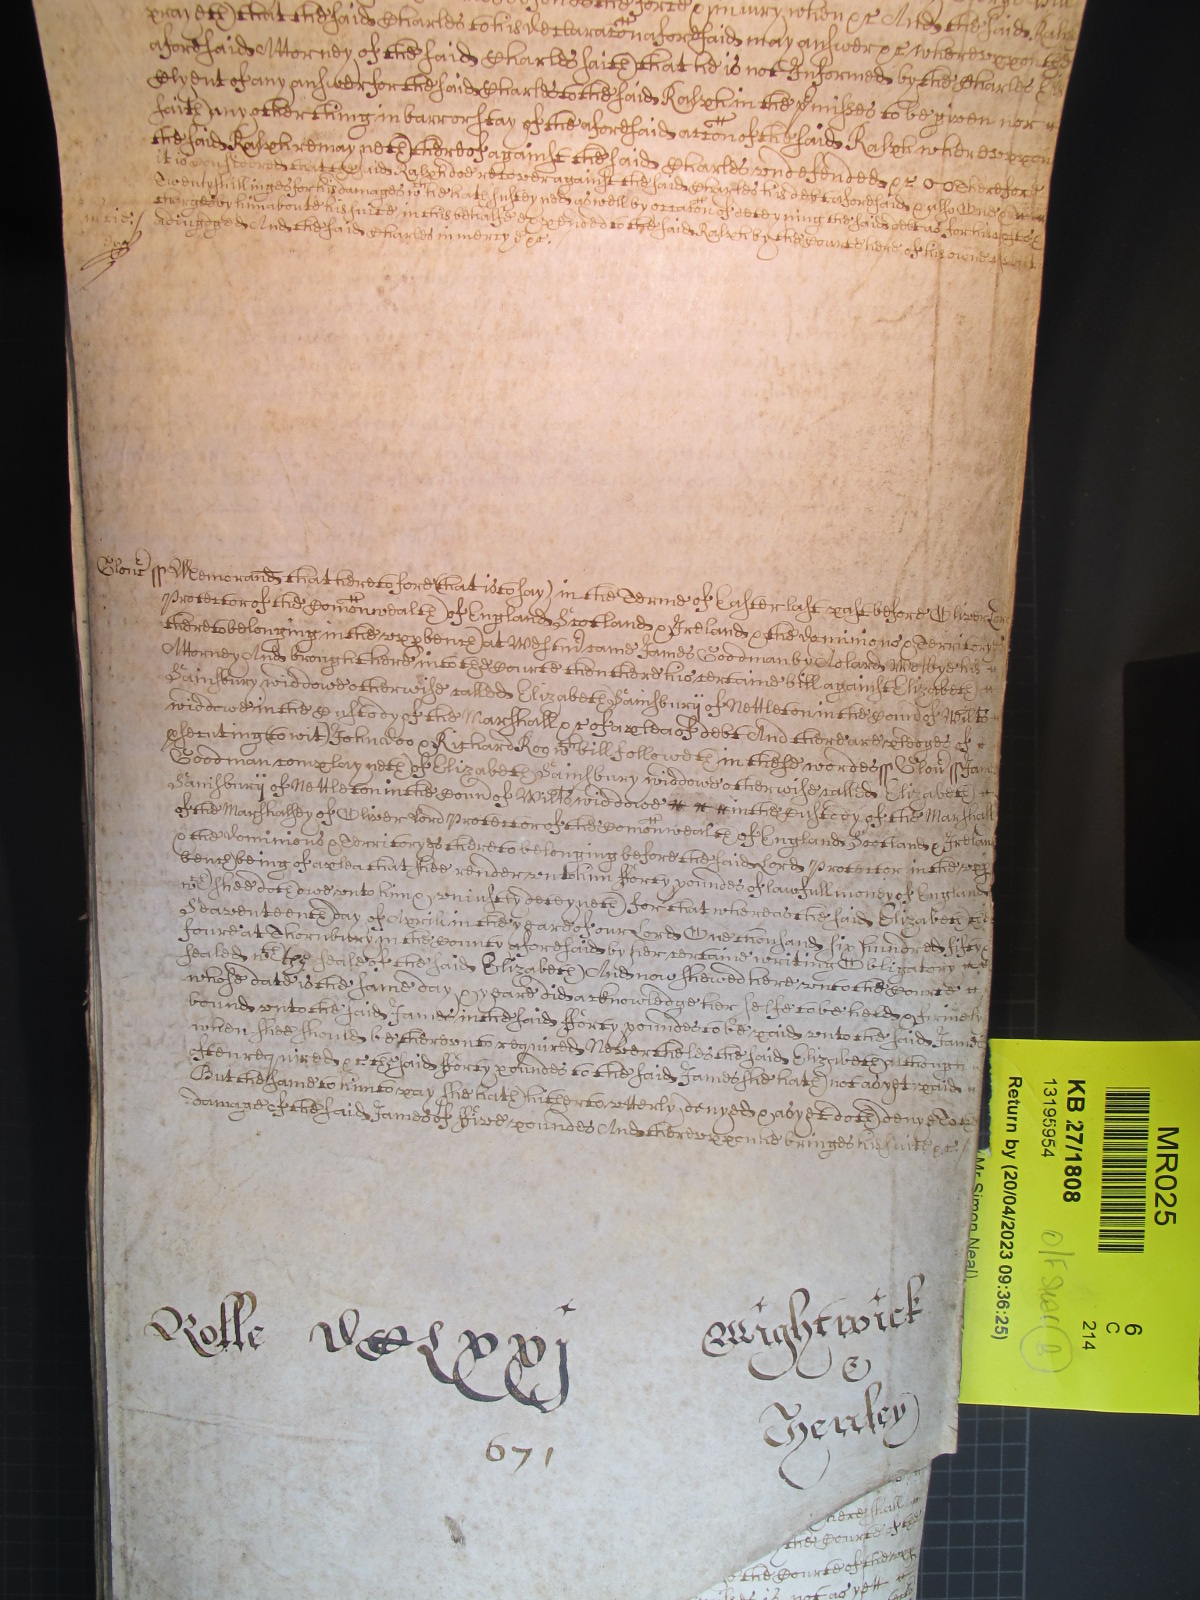 prayeth that the said Charles to his declaracon aforesaid may answer &c whereupon the
aforesaid Attorney of the said Charles saith that he is not Informed by the Charles his
Clyent of any answer for the said Charles to the said Ralph in the pmisses to be given nor
saith any other thing in barr or stay of the aforesaid accon of the said Ralph whereupon
the said Ralph remayneth thereof against the said Charles vndefended &c Therefore
it is considered that the said Ralph doe recover against the said Charles his debt aforesaid & allso One &
Twenty shillinges for his damages wch he hath susteyned aswell by occacon of deteyning the said debt as for his costes
charges by him aboute his suite in this behalfe expended to the said Ralph by the Courte here of his owne assent
adiudged And the said Charles in mercy &c
Gloucr ss Memorand that heretofore (that is to say) in the Terme of Easter last past before Oliver Lord
Protector of the Comonwealth of England Scotland & Ireland & the dominions & Territoryes
thereto belonging in the vpper bench at Westmr came James Goodman by his
Attorney And brought here into the Courte then there his certaine bill against Elizabeth
Sainsbury widdowe otherwise called Elizabeth Sainsbury of Nettleton in the Coun of Wiltes
widdowe in the Custody of the Marshall &c of a plea of debt And there are pledges of
psecuting to wit John Doo & Richard Roo wch bill followeth in these wordes ss Glouc ss James
Goodman complayneth of Elizabeth Sainsbury widdowe otherwise called Elizabeth
Sainsbury of Nettleton in the Coun of Wiltes widdowe in the Custody of the Marshall
of the Marshallsey of Oliver Lord Protector of the Comonwealth of England Scotland & Ireland
& the dominions & Territoryes thereto belonging before the said Lord Protector in the vpper
bench being of a plea that shee render vnto him fforty poundes of lawfull money of England
wch shee doth owe vnto him & vniustly deteyneth for that whereas the said Elizabeth the
Seaventeenth day of Aprill in the yeare of our Lord One thousand six hundred fifty
foure at Thornbury in the County aforesaid by her certaine writing Obligatory
sealed wth the seale of the said Elizabeth And now shewed here vnto the Courte
whose date is the same day & yeare did acknowledge her selfe to be held & firmely
bound vnto the said James in the said fforty poundes to be paid vnto the said James
when shee should be therevnto required Neverthelesse the said Elizabeth although
often required &c the said fforty poundes to the said James she hath not as yet paid
But the same to him to pay she hath hitherto vtterly denyed & as yet doth deny To the
damage of the said James of ffive poundes And therevpon he bringes his suite &c
Rolle DCLxxj
Wightwick
&
Henley
671
MR025
6
C
214
KB 27/1808
13195954
Return by (20/04/2023 09:36:25)
Mr Simon Neal)